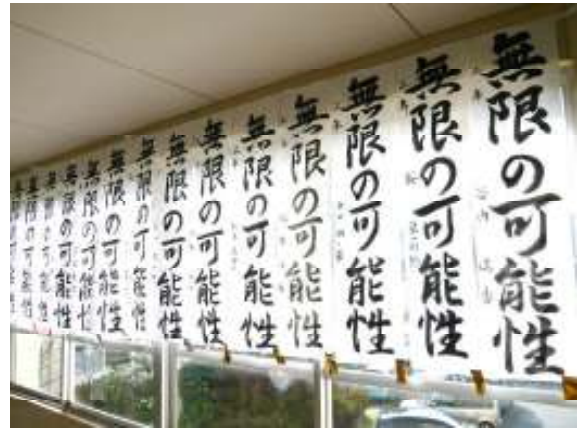 無限の可能性
無限の可能性
無限の可能性
無限の可能性
無限の可能性
無限の可能性
無限の可能性
無限の可能性
無限の可能性
無限の可能性
無限の可能性
無限の可能性
無限の可能性
無限の可能性